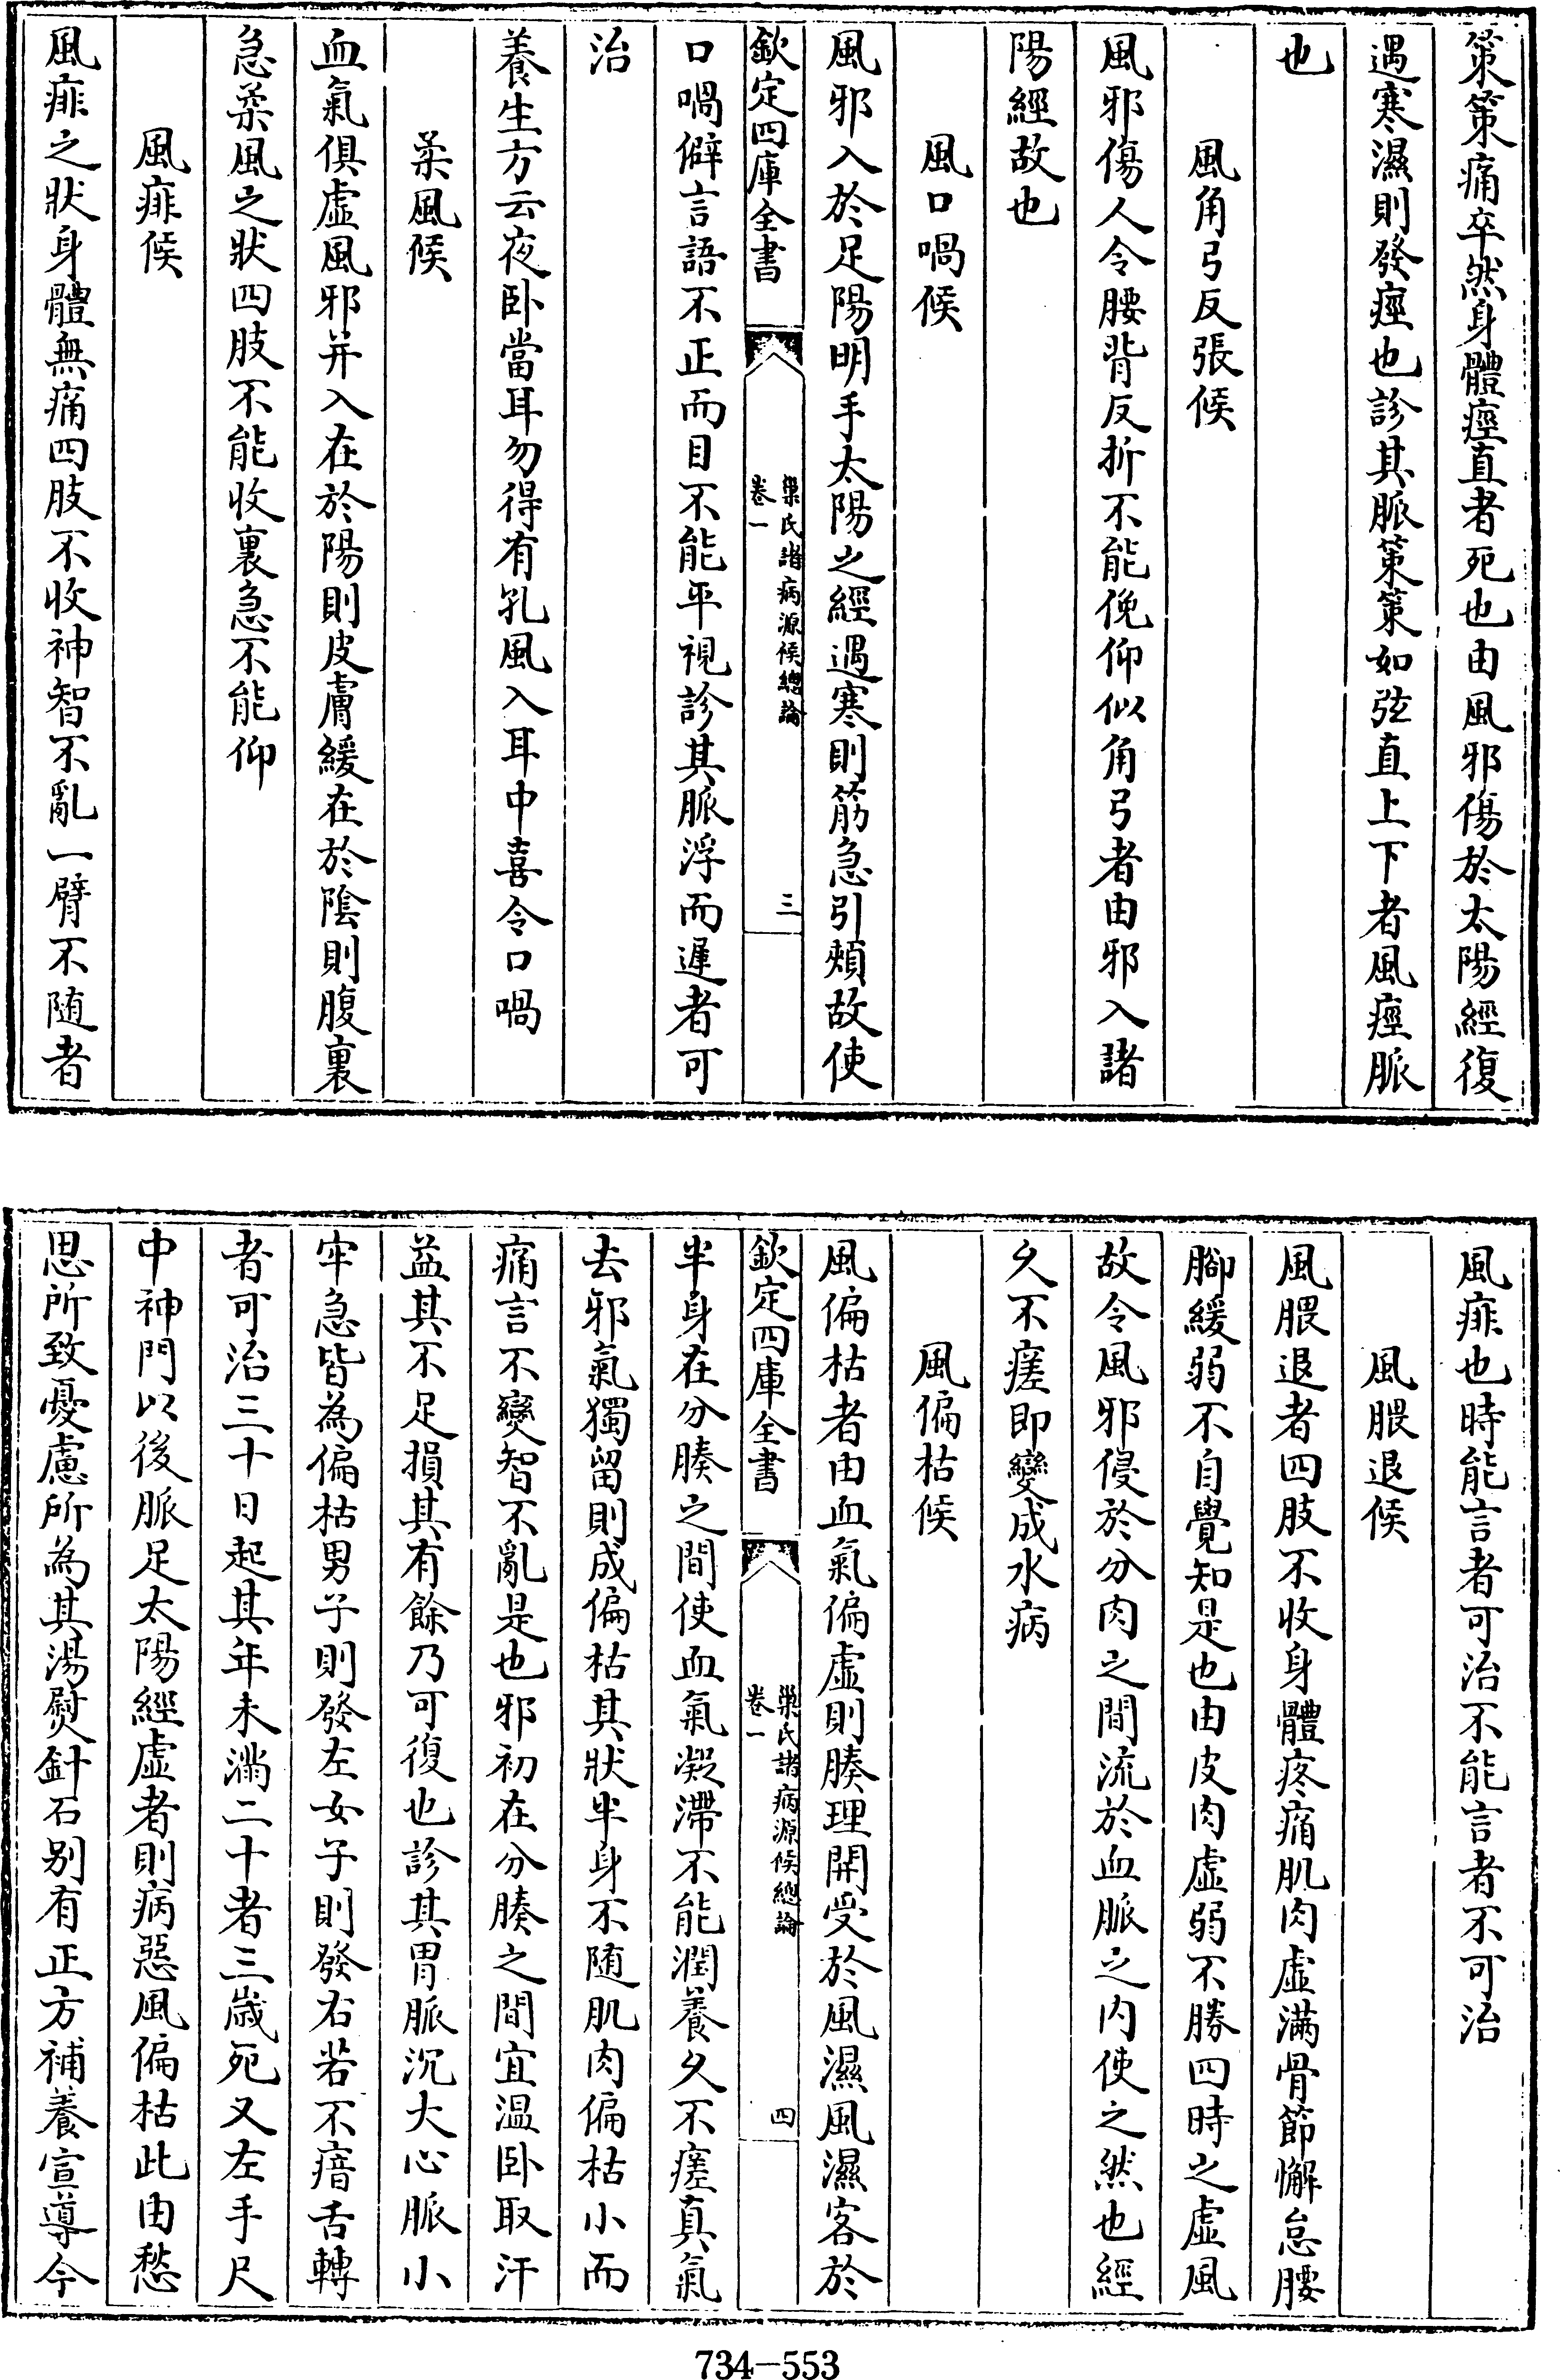 策策痛卒然身體痙直者死也由風邪傷於太陽經復
遇寒濕則發痙也診其脈策策如弦直上下者風痙脈
也
風角弓反張候
風邪傷人令腰背反折不能俛仰似角弓者由邪入諸
陽經故也
風口喎候
風邪入於足陽明手太陽之經遇寒則筋急引頰故使
欽定四庫全書
巢氏諸病源候總論
卷一
三
口喎僻言語不正而目不能平視診其脈浮而遲者可
治
養生方云夜卧當耳勿得有孔風入耳中喜令口喎
柔風候
血氣俱虛風邪并入在於陽則皮膚緩在於陰則腹裏
急柔風之狀四肢不能收裏急不能仰
風痱候
風痱之狀身體無痛四肢不收神智不亂一臂不随者
風痱也時能言者可治不能言者不可治
風腲退候
風腲退者四肢不收身體疼痛肌肉虛滿骨節懈怠腰
腳緩弱不自覺知是也由皮肉虛弱不勝四時之虛風
故令風邪侵於分肉之間流於血脈之内使之然也經
久不瘥即變成水病
風偏枯候
風偏枯者由血氣偏虛則腠理開受於風濕風濕客於
欽定四庫全書
巢氏諸病源候總論
卷一
四
半身在分腠之間使血氣凝滯不能潤養久不瘥真氣
去邪氣獨留則成偏枯其狀半身不随肌肉偏枯小而
痛言不變智不亂是也邪初在分腠之間宜温卧取汗
益其不足損其有餘乃可復也診其胃脈沉大心脈小
牢急皆為偏枯男子則發左女子則發右若不瘖舌轉
者可治三十日起其年未滿二十者三歲死又左手尺
中神門以後脈足太陽經虛者則病惡風偏枯此由愁
思所致憂慮所為其湯熨針石别有正方補養宣導今
734-553